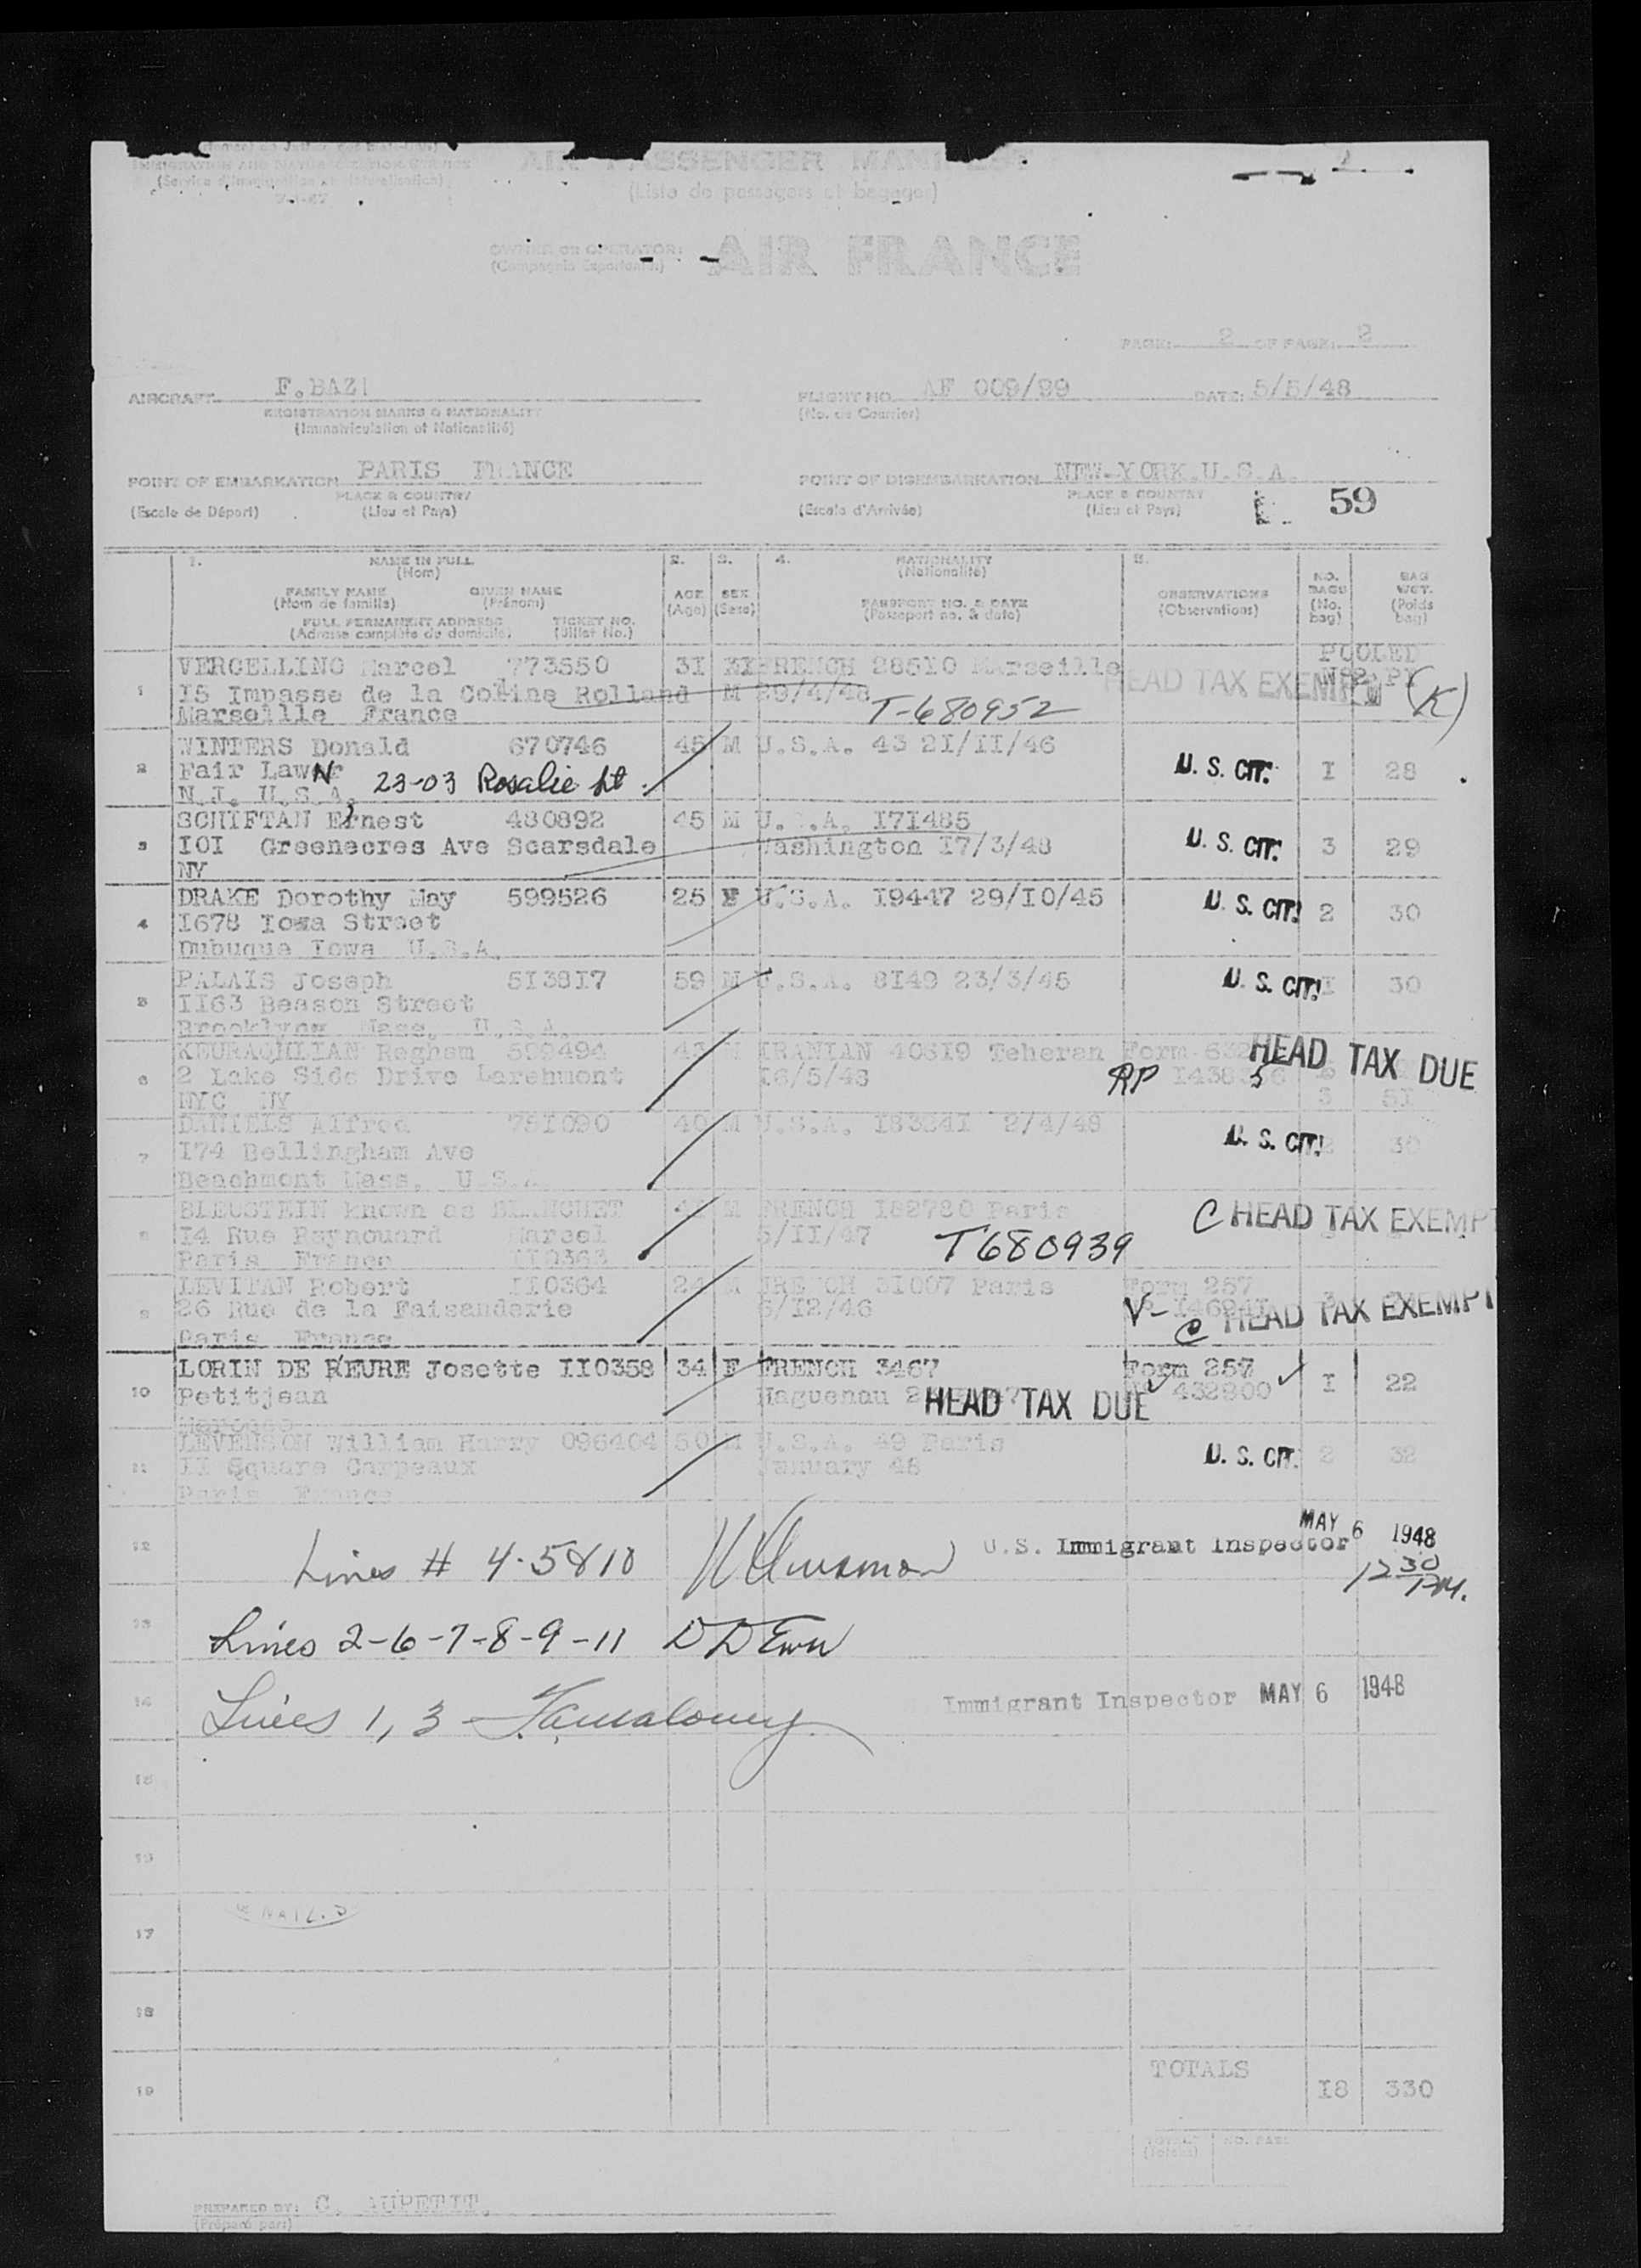 AIR PASSENGER MANIFEST
(Liste de passagers et bagages)
IMMIGRATION AND NATURALIZATION SERVICE
(Service d'Immigration et Naturalisation)
OWNER OR OPERATOR: AIR FRANCE
(Compagnie Exportante)
PAGE: 2 OF PAGE: 2
AIRCRAFT F.BAZ
REGISTRATION MARKS & NATIONALITY
(Immatriculation et Nationalité)
FLIGHT NO. AF 009/99 DATE: 5/5/48
(No. de Courrier)
POINT OF EMBARKATION PARIS FRANCE
PLACE & COUNTRY
(Escale de Départ) (Lieu et Pays)
POINT OF DISEMBARKATION NEW-YORK.U.S.A.
PLACE & COUNTRY
(Escale d'Arrivée) (Lieu et Pays)
59
1. NAME IN FULL 2. 3. 4. NATIONALITY 5.
(Nom) (Nationalité)
FAMILY NAME GIVEN NAME AGE SEX PASSPORT NO. & DATE OBSERVATIONS NO. BAGS BAG WGT.
(Nom de famille) (Prénom) (Age) (Sexe) (Passeport no. & date) (Observations) (No. bag) (Poids bag)
FULL PERMANENT ADDRESS TICKET NO.
(Adresse complète de domicile) (Billet No.)
1 VERCELLINO Marcel 773550 31 FRENCH 28510 Marseille POOLED
15 Impasse de la Coline Rolland M 29/4/48 HEAD TAX EXEMPT (K)
Marseille France T-680952
2 WINTERS Donald 670746 45 M U.S.A. 43 2I/II/46
Fair Lawn 23-03 Rosalie St. U. S. CIT. I 28
N.J. U.S.A.
3 SCHIFTAN Ernest 480892 45 M U.S.A. I7I485
IOI Greenacres Ave Scarsdale Washington I7/3/48 U. S. CIT. 3 29
NY
4 DRAKE Dorothy May 599526 25 F U.S.A. I9447 29/I0/45 U. S. CIT. 2 30
I678 Iowa Street
Dubuque Iowa U.S.A.
5 PALAIS Joseph 5I38I7 59 M U.S.A. 8I49 23/3/45 U. S. CIT. I 30
II63 Beason Street
Brooklyne Mass. U.S.A.
6 Regham 599494 43 M IRANIAN 40819 Teheran Form 632 HEAD TAX DUE
2 Lake Side Drive Larchmont I6/5/43 RP
NYC NY 3 51
7 DANIELS Alfred 75I090 40 M U.S.A. I8324I 2/4/48 U. S. CIT. 2 30
I74 Bellingham Ave
Beachmont Mass. U.S.A.
8 BLEUSTEIN known as BLANCHET M FRENCH I82780 Paris C HEAD TAX EXEMPT
I4 Rue Raynouard Marcel 5/II/47 T680939
Paris France II0363
9 LEVITAN Robert II0364 24 M FRENCH 3I007 Paris Form 257
26 Rue de la Faisanderie 6/I2/46 V- C HEAD TAX EXEMPT
Paris France
10 LORIN DE REURE Josette II0358 34 F FRENCH 3467 Form 257
Petitjean Haguenau HEAD TAX DUE 432800 I 22
11 LEVENSON William Harry 096404 50 M U.S.A. 49 Paris
II Square Carpeaux January 48 U. S. CIT. 2 32
Paris France
12 Lines # 4-5&10 U.S. Immigrant Inspector MAY 6 1948
12 30 P.M.
13 Lines 2-6-7-8-9-11
14 Lines 1, 3 Immigrant Inspector MAY 6 1948
17
18
19 TOTALS I8 330
PREPARED BY: C. AUPETIT.
(Préparé par)